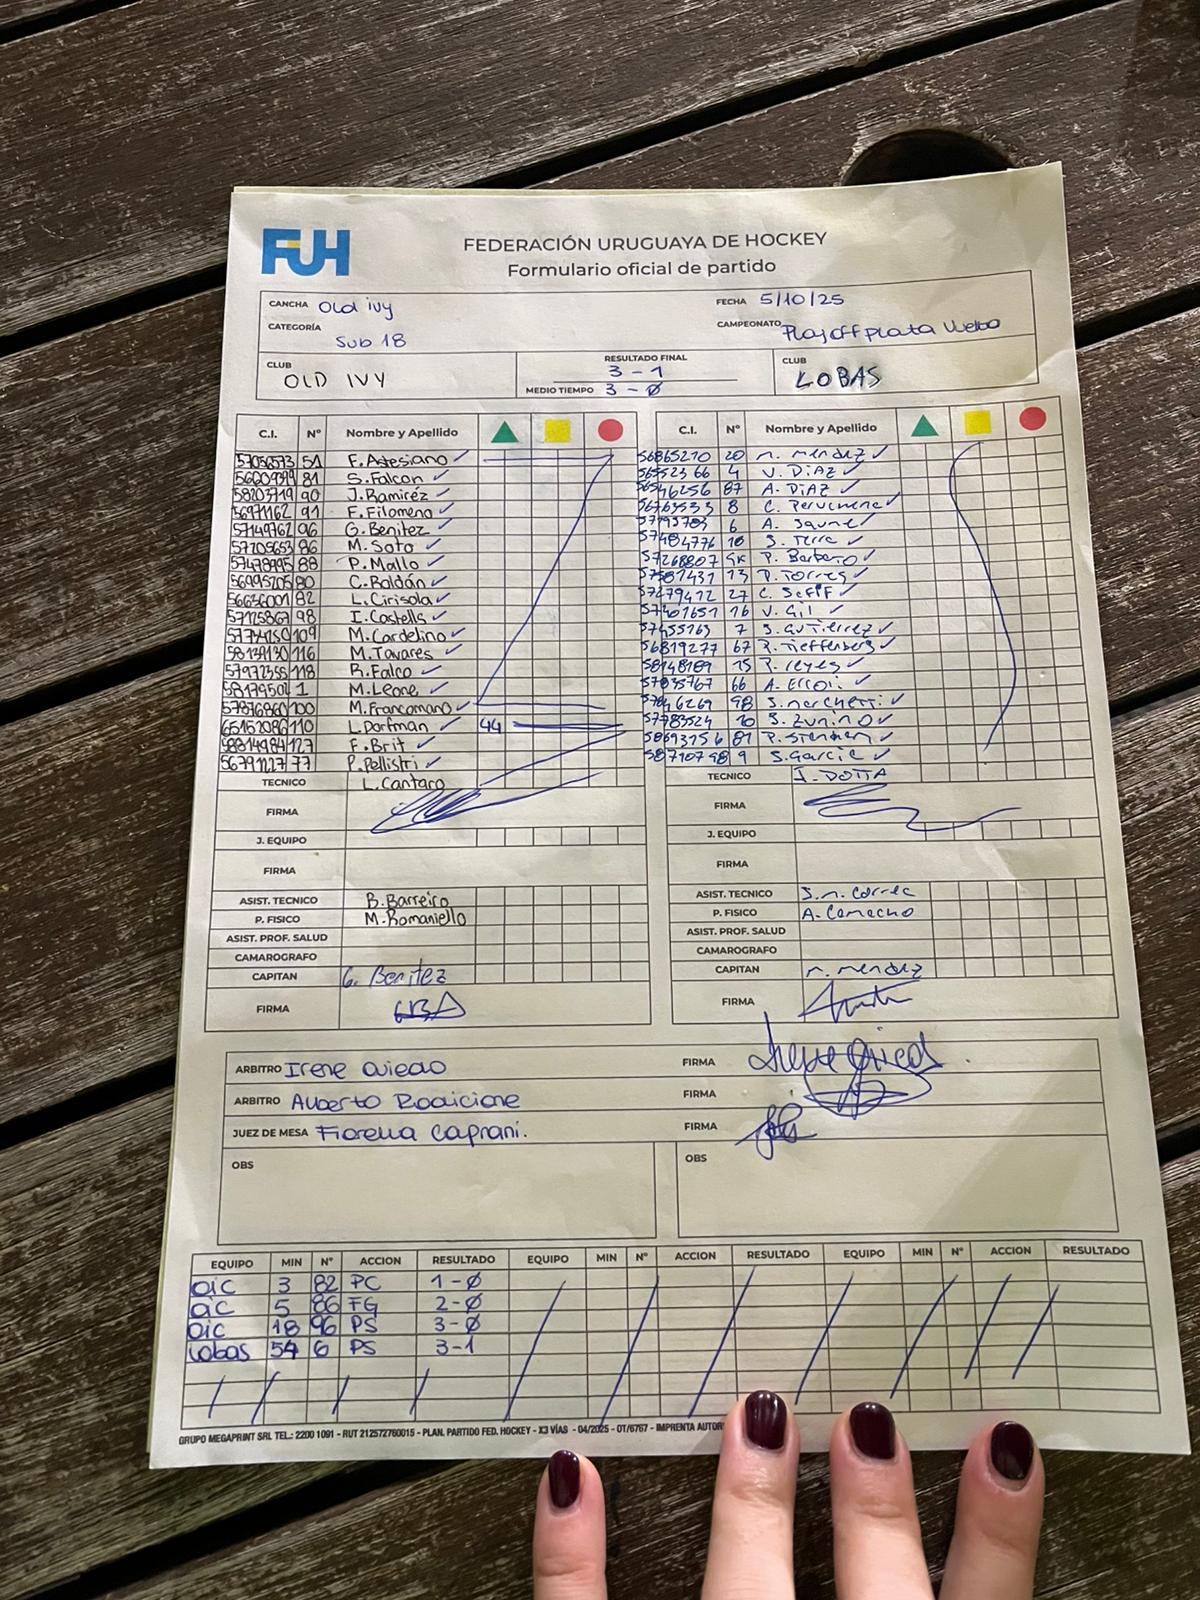 FUH
FEDERACIÓN URUGUAYA DE HOCKEY
Formulario oficial de partido
CANCHA Old ivy FECHA 5/10/25
CATEGORÍA Sub 18 CAMPEONATO Playoff plata
CLUB OLD IVY RESULTADO FINAL 3 - 1 CLUB LOBAS
MEDIO TIEMPO 3 - 0
C.I. Nº Nombre y Apellido C.I. Nº Nombre y Apellido
57056573 51 F. Astesiano 56865210 20 M. mendez
81 S. Falcon 4 V. DiAZ
58203719 90 J. Ramiréz 87 A. DiAZ
56971162 91 F. Filomeno 8 C.
57149762 96 G. Benitez 6 A.
57205653 86 M. Soto 57484776 10 S. Terra
57478995 88 P. Mallo 57268807 P. Barbero
80 C. Roldán 57587431 13 P. Torres
56636001 82 L. Cirisola 57279412 27 C. Seff
98 I. Costells 57401651 16 V. Gil
109 M. Cardelino 57455163 7 S. Gutierrez
58139130 116 M. Tavares 56819277 67 P. Tieffenberg
57972355 118 R. Falco 58148189 15 P. reyes
58179504 1 M. Leone 57835767 66 A. Errori
57876860 100 M. Francomano 98 S. marchetti
65152086 110 L. Dorfman 44 57783524 10 S. Zunino
58814984 127 F. Brit 81 P.
56791227 77 P. Pellistri 9 S. Garcia
TECNICO L. Cantaro TECNICO J. DOTTA
FIRMA FIRMA
J. EQUIPO J. EQUIPO
FIRMA FIRMA
ASIST. TECNICO B. Barreiro ASIST. TECNICO
P. FISICO M. Romaniello P. FISICO A. Camacho
ASIST. PROF. SALUD ASIST. PROF. SALUD
CAMAROGRAFO CAMAROGRAFO
CAPITAN G. Benitez CAPITAN M. mendez
FIRMA FIRMA
ARBITRO Irene Oviedo FIRMA
ARBITRO Alberto FIRMA
JUEZ DE MESA Fiorella Caprani. FIRMA
OBS OBS
EQUIPO MIN Nº ACCION RESULTADO EQUIPO MIN Nº ACCION RESULTADO EQUIPO MIN Nº ACCION RESULTADO
OIC 3 82 PC 1-0
OIC 5 86 FG 2-0
OIC 18 96 PS 3-0
Lobas 54 6 PS 3-1
GRUPO MEGAPRINT SRL TEL.: 2200 1091 - RUT 212572760015 - PLAN. PARTIDO FED. HOCKEY - X3 VÍAS - 04/2025 - OT/6767 - IMPRENTA AUTOR